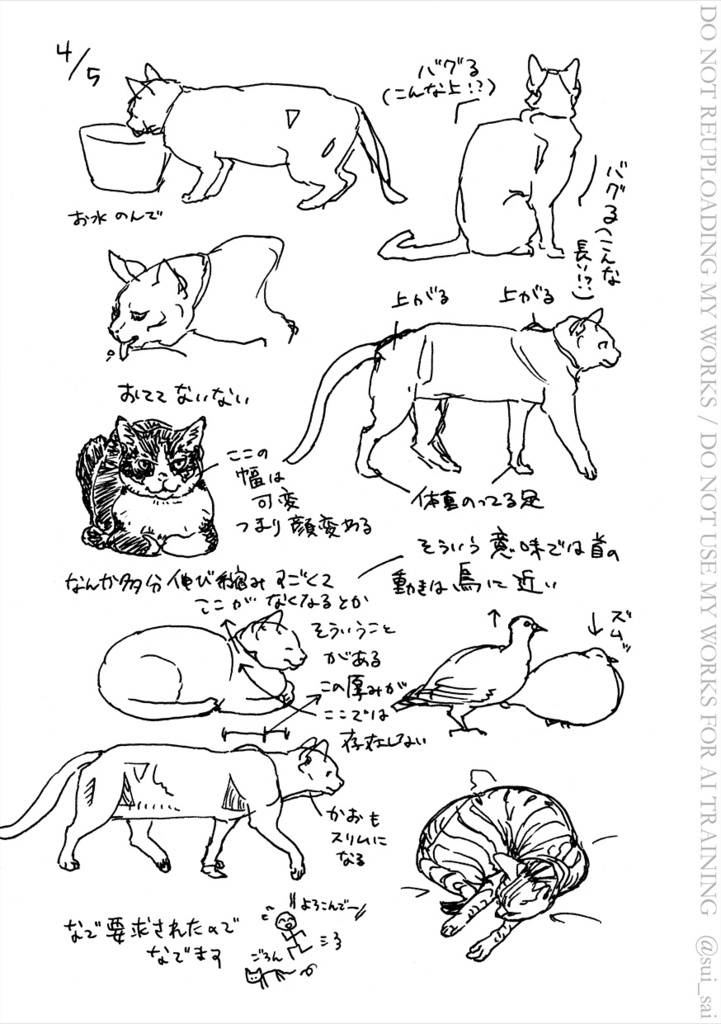 4/5
バグる
(こんな上!?)
お水のんで
バグる(こんな
長い!?)
上がる
上がる
おててないない
ここの
幅は
可変
つまり顔変める
体重のってる足
そういう意味では首の
動きは鳥に近い
なんか多分伸び縮みすごくて
ここがなくなるとか
そういうこと
がある
この厚みが
ここでは
存在しない
ズムッ
かおも
スリムに
なる
なで要求されたので
なでます
よろこんでー!!
ごろん
DO NOT REUPLOADING MY WORKS / DO NOT USE MY WORKS FOR AI TRAINING @sui_sai